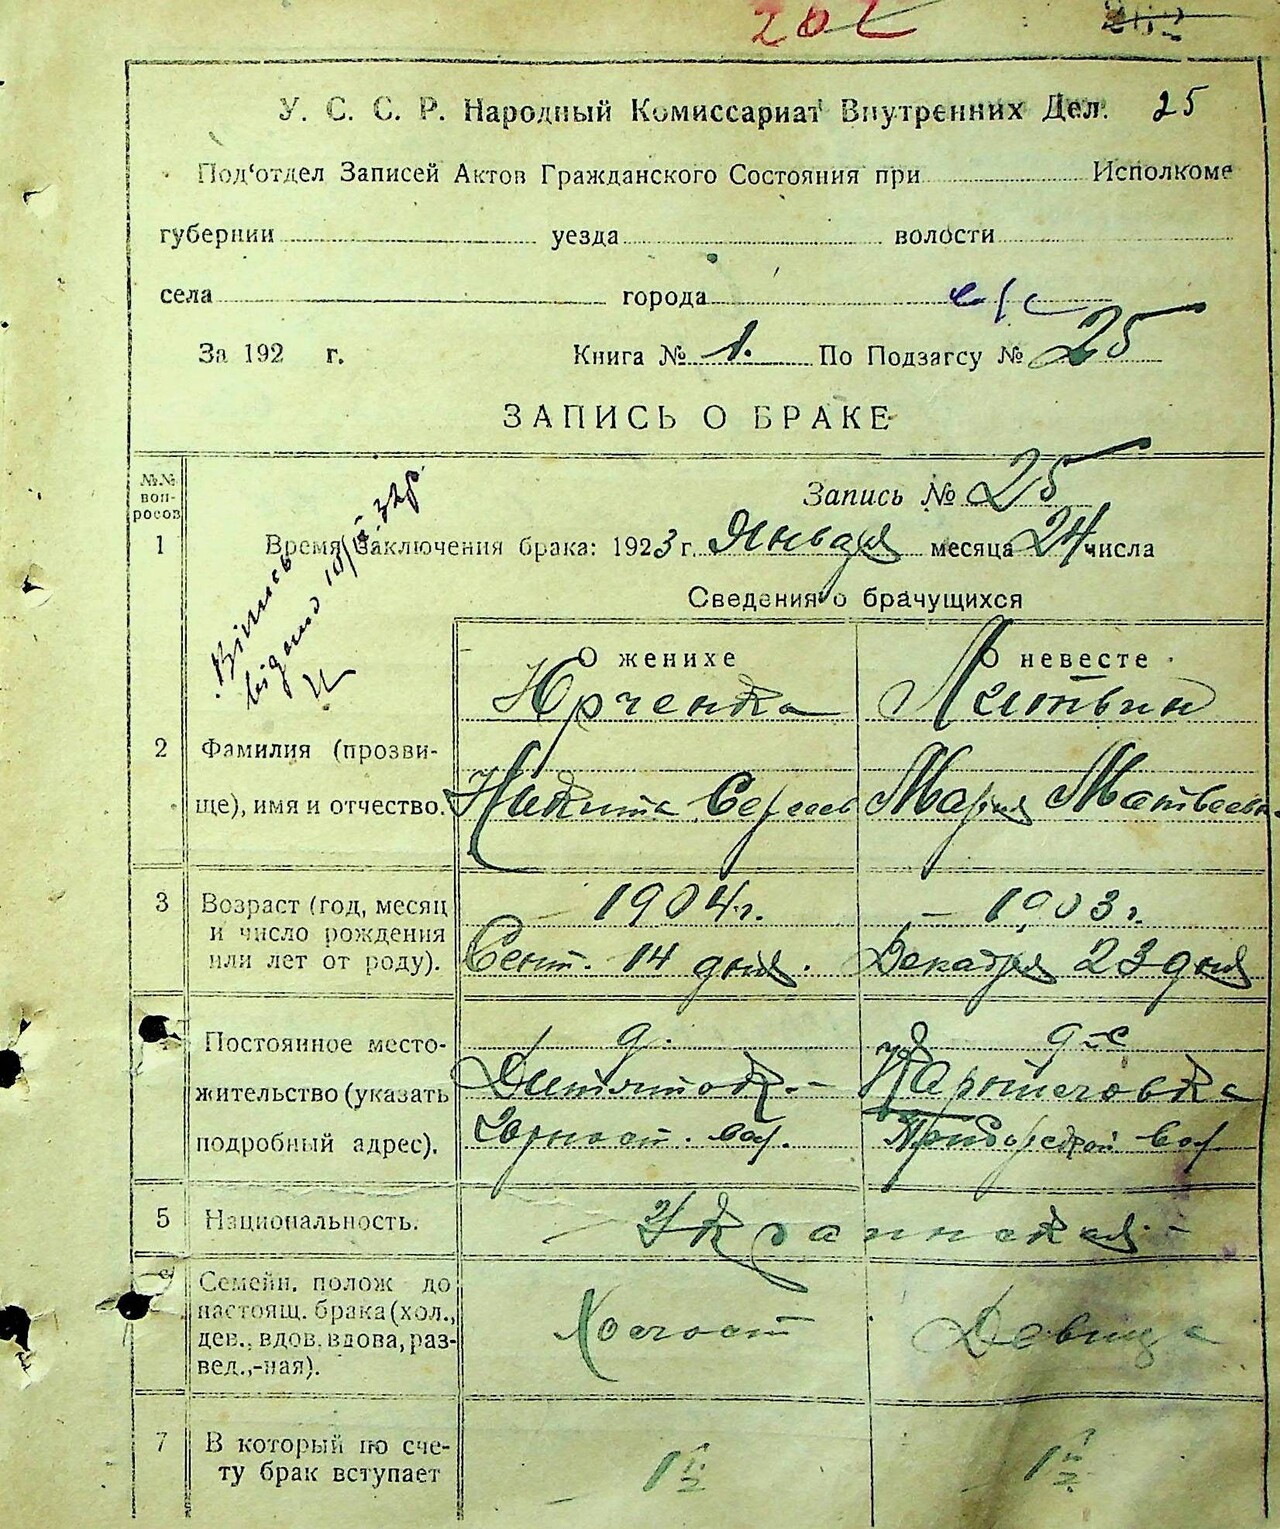 202
У. С. С. Р. Народный Комиссариат Внутренних Дел. 25
Под'отдел Записей Актов Гражданского Состояния при Исполкоме
губернии уезда волости
села города
За 192 г. Книга № 1. По Подзагсу № 25
ЗАПИСЬ О БРАКЕ
№№ вопросов
Запись № 25
1 Время заключения брака: 1923 г. Января месяца 24 числа
Витяг
видано
Сведения о брачущихся
О женихе О невесте
Юрченко Литвин
2 Фамилия (прозви-
ще), имя и отчество. Никита Сергеев Мария Матвеевн.
3 Возраст (год, месяц 1904 г. 1903 г.
и число рождения
или лет от роду). Сент. 14 дня. Декабря 23 дня
Постоянное место- д.
жительство (указать Дитятки
подробный адрес). вол. вол
5 Национальность. Украинская
Семейн. полож до
настоящ. брака (хол., Холост Девица
дев., вдов. вдова, раз-
вед.,-ная).
7 В который по сче-
ту брак вступает 1й 1й